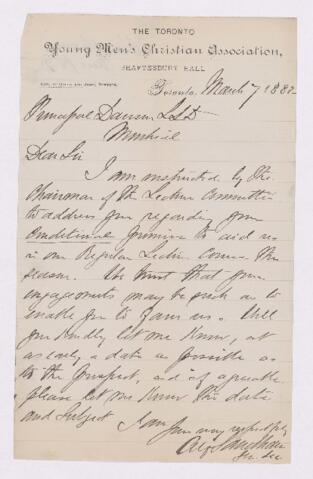 THE TORONTO
Young Men's Christian Association,
SHAFTESBURY HALL
Toronto, March 7 1882
Principal Dawson LLD
Montreal
Dear Sir
I am instructed by the
Chairman of the Lecture Committee
to address you regarding your
conditional promise to aid us
in our Regular Lecture Course this
season. We trust that your
engagements may be such as to
enable you to favor us. Will
you kindly let me know, at
as early a date as possible as
to the prospect, and if agreeable
please let me know the date
and subject
I am
Yours very respectfully
Sec